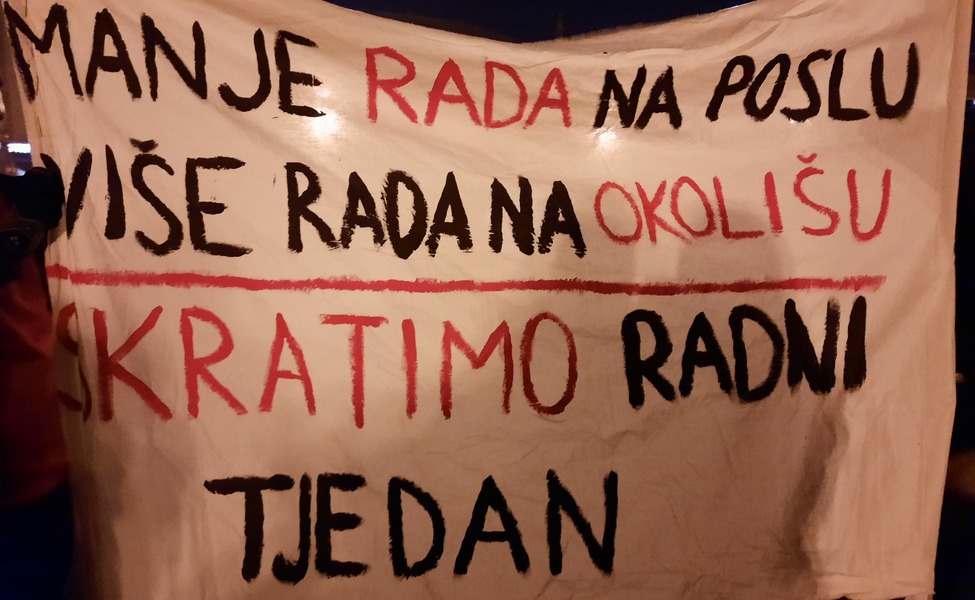 MANJE RADA NA POSLU
VIŠE RADA NA OKOLIŠU
SKRATIMO RADNI
TJEDAN